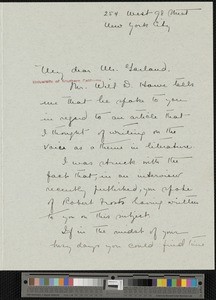 254 West 98 Street
New York City
My dear Mr. Garland.
University of Southern California
Mr. Will D. Howe tells
me that he spoke to you
in regard to an article that
I thought of writing on the
Voice as a theme in literature.
I was struck with the
fact that, in an interview
recently published, you spoke
of Robert Frost having written
to you on this subject.
If in the midst of your
busy days you could find time